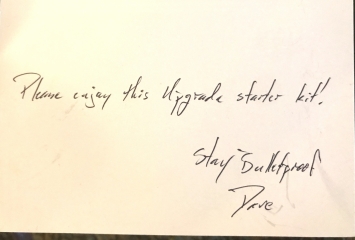 Please enjoy this Upgrade starter kit!
Stay Bulletproof
Dave